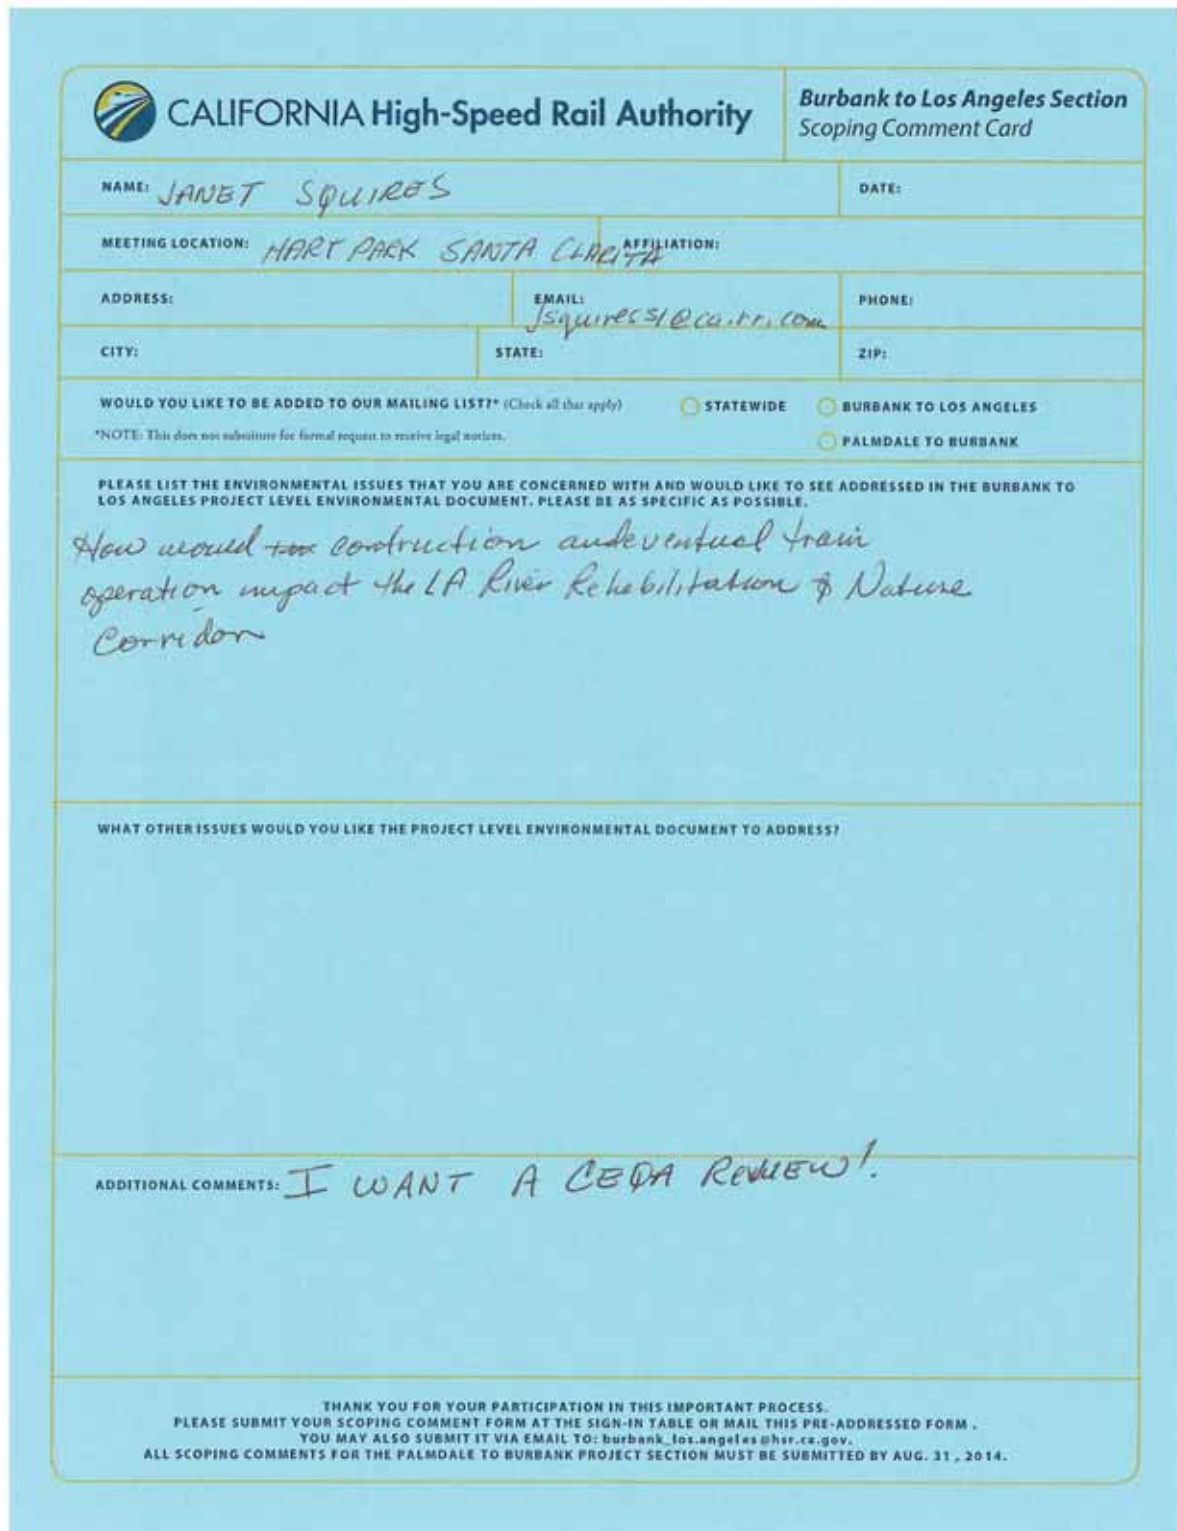 CALIFORNIA High-Speed Rail Authority
Burbank to Los Angeles Section
Scoping Comment Card
NAME: JANET SQUIRES
DATE:
MEETING LOCATION: HART PARK SANTA CLARITA
AFFILIATION:
ADDRESS:
EMAIL:
jsquires51@ca.rr.com
PHONE:
CITY:
STATE:
ZIP:
WOULD YOU LIKE TO BE ADDED TO OUR MAILING LIST?* (Check all that apply)
STATEWIDE
BURBANK TO LOS ANGELES
*NOTE: This does not substitute for formal request to receive legal notices.
PALMDALE TO BURBANK
PLEASE LIST THE ENVIRONMENTAL ISSUES THAT YOU ARE CONCERNED WITH AND WOULD LIKE TO SEE ADDRESSED IN THE BURBANK TO
LOS ANGELES PROJECT LEVEL ENVIRONMENTAL DOCUMENT. PLEASE BE AS SPECIFIC AS POSSIBLE.
How would contruction and eventual train
operation impact the LA River Rehabilitation & Nature
Corridor
WHAT OTHER ISSUES WOULD YOU LIKE THE PROJECT LEVEL ENVIRONMENTAL DOCUMENT TO ADDRESS?
ADDITIONAL COMMENTS: I WANT A CEQA REVIEW!
THANK YOU FOR YOUR PARTICIPATION IN THIS IMPORTANT PROCESS.
PLEASE SUBMIT YOUR SCOPING COMMENT FORM AT THE SIGN-IN TABLE OR MAIL THIS PRE-ADDRESSED FORM .
YOU MAY ALSO SUBMIT IT VIA EMAIL TO: burbank_los.angeles@hsr.ca.gov.
ALL SCOPING COMMENTS FOR THE PALMDALE TO BURBANK PROJECT SECTION MUST BE SUBMITTED BY AUG. 31 , 2014.